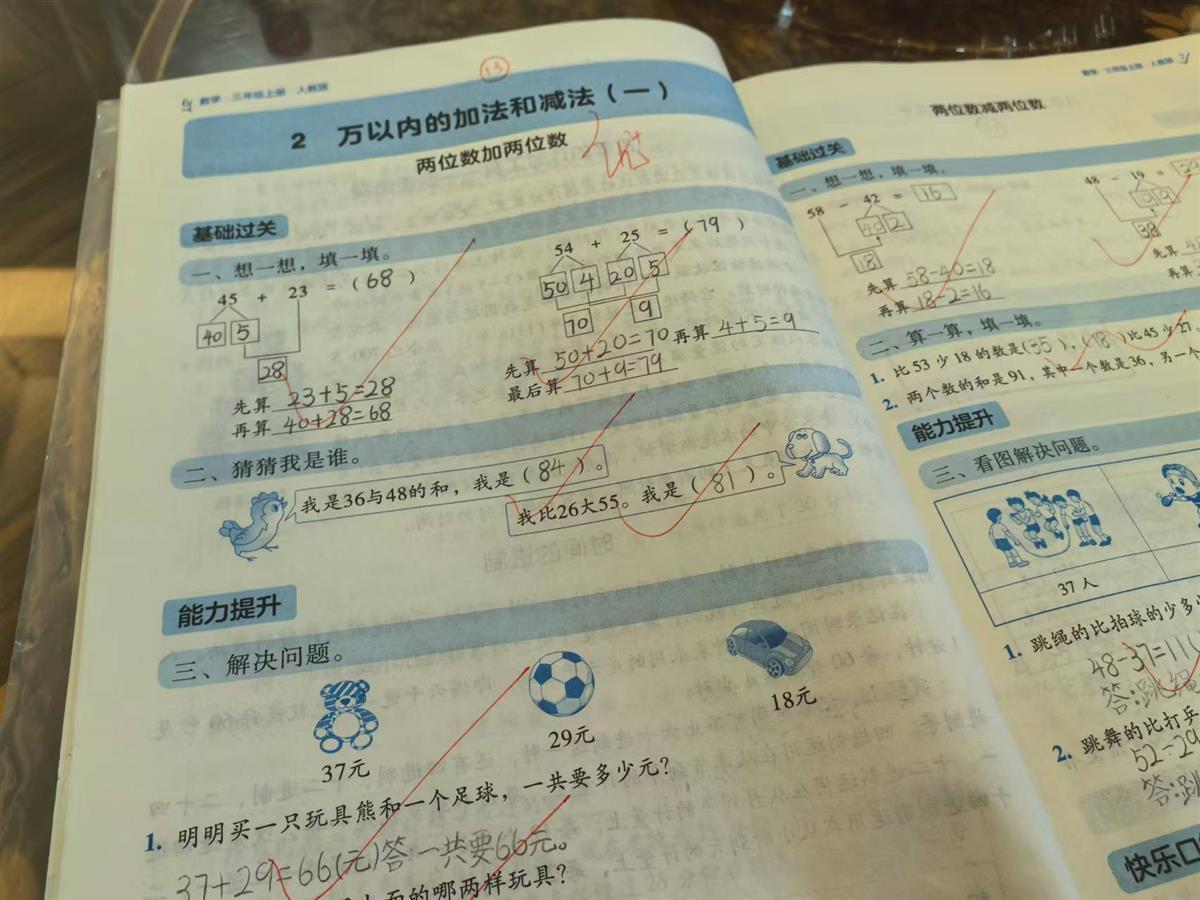 数学·三年级上册 人教版
13
2 万以内的加法和减法（一）
两位数加两位数
基础过关
一、想一想，填一填。
45 + 23 =（68）
40 5
28
先算 23+5=28
再算 40+28=68
54 + 25 =（79）
50 4 20 5
70 9
先算 50+20=70 再算 4+5=9
最后算 70+9=79
二、猜猜我是谁。
我是36与48的和，我是（84）。
我比26大55。我是（81）。
能力提升
三、解决问题。
37元
29元
18元
1. 明明买一只玩具熊和一个足球，一共要多少元？
37+29=66(元)答:一共要66元。
面的哪两样玩具？
数学·三年级上册 人教版
两位数减两位数
基础过关
一、想一想，填一填。
58 - 42 = 16
40 2
18
先算 58-40=18
再算 18-2=16
48 - 19 =
10 9
38
先算
再算
二、算一算，填一填。
1. 比53少18的数是（35），（18）比45少27。
2. 两个数的和是91，其中一个数是36，另一个
能力提升
三、看图解决问题。
37人
1. 跳绳的比拍球的少多少
48-37=11(
答:跳绳
2. 跳舞的比打乒
52-29
答:跳
快乐口